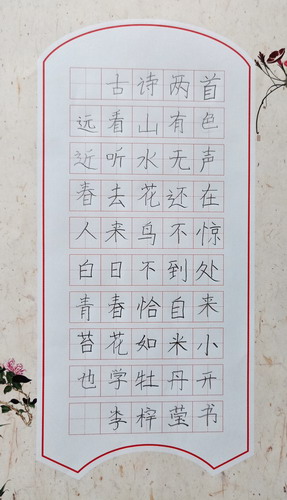 古诗两首
远看山有色
近听水无声
春去花还在
人来鸟不惊
白日不到处
青春恰自来
苔花如米小
也学牡丹开
李梓莹书